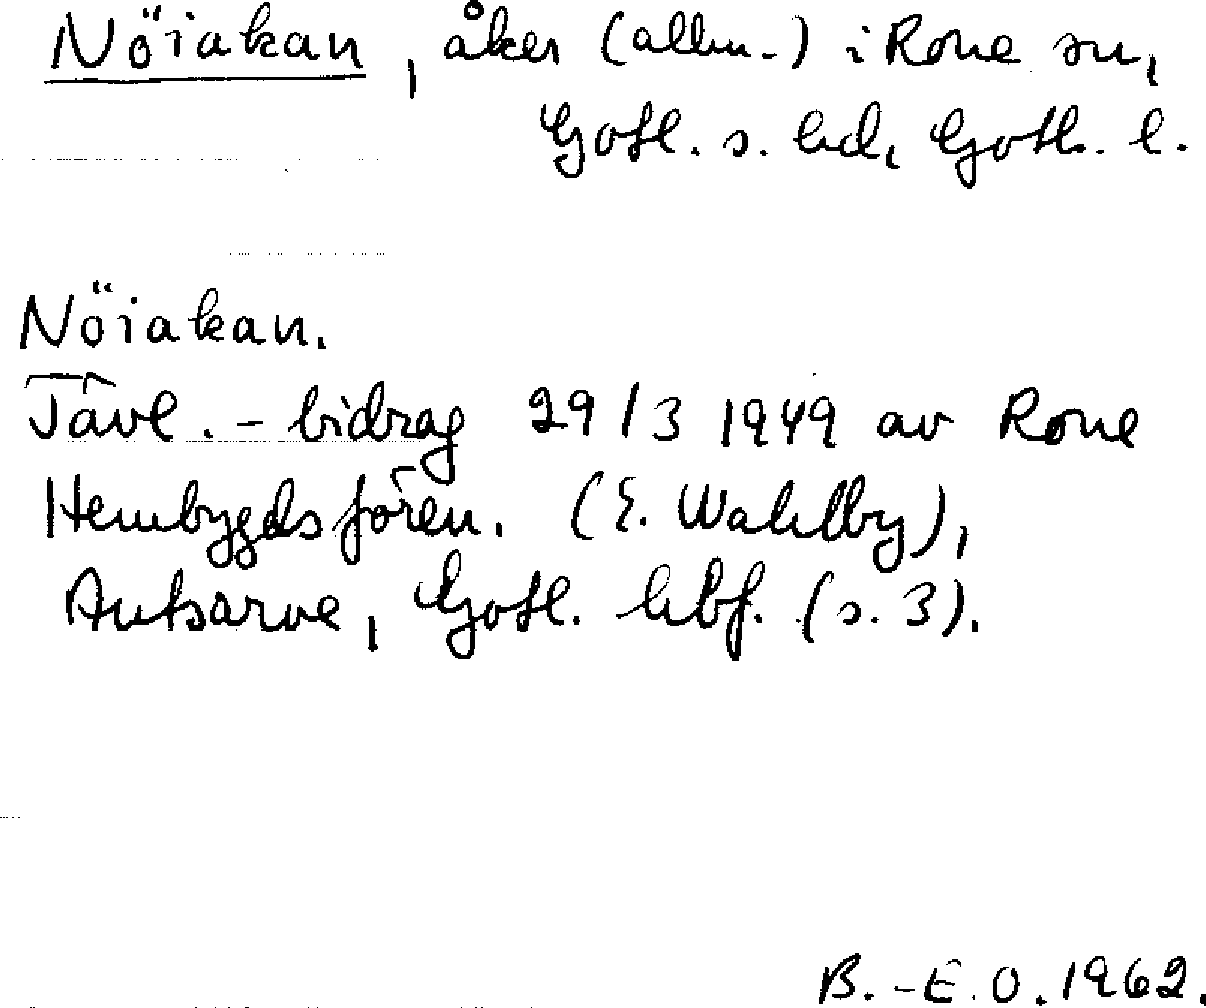 Nöiakan, åker (allm.) i Rone sn,
Gotl. s. hd, Gotl. l.
Nöiakan.
Tävl.-bidrag 29/3 1949 av Rone
Hembygdsfören. (E. Wahlby),
Autsarve, Gotl. hbf. (s. 3).
B.-E.O. 1962.